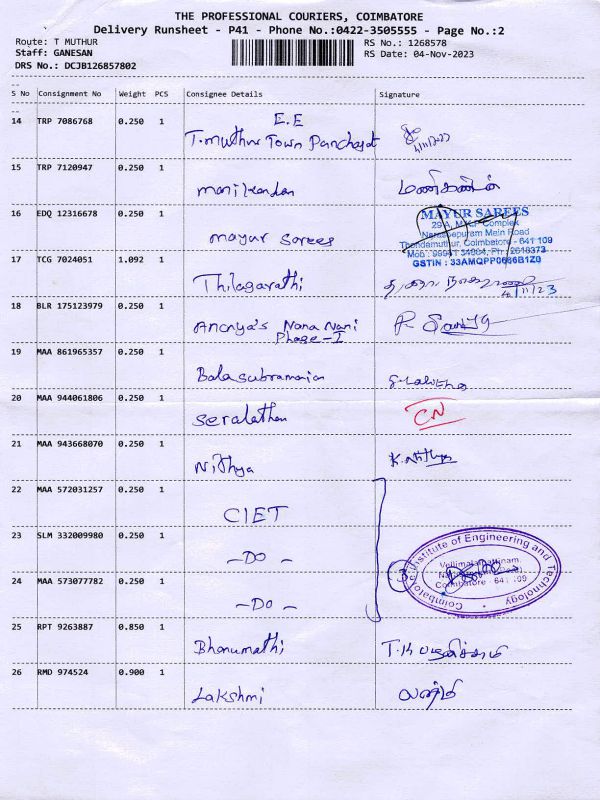 THE PROFESSIONAL COURIERS, COIMBATORE
Delivery Runsheet - P41 - Phone No.:0422-3505555 - Page No.:2
Route: T MUTHUR RS No.: 1268578
Staff: GANESAN RS Date: 04-Nov-2023
DRS No.: DCJB126857802
S No Consignment No Weight PCS Consignee Details Signature
14 TRP 7086768 0.250 1 E.E
T.muthur Town Panchayat 4/11/23
15 TRP 7120947 0.250 1
manikandan மணிகண்டன்
16 EDQ 12316678 0.250 1
mayur sarees
MAYUR SAREES
29 A, Complex
Main Road
Thondamuthur, Coimbatore - 641 109
GSTIN : 33AMQPP0686B1Z0
17 TCG 7024051 1.092 1
Thilagarathi
4/11/23
18 BLR 175123979 0.250 1
Ananya's Nana Nani
Phase-I
19 MAA 861965357 0.250 1
Balasubramanian
20 MAA 944061806 0.250 1
Seralathan CN
21 MAA 943668070 0.250 1
Nithya K. Nithya
22 MAA 572031257 0.250 1
CIET
23 SLM 332009980 0.250 1
-DO-
Coimbatore Institute of Engineering and Technology
Vellimalaipattinam,
Coimbatore - 641 109
3
24 MAA 573077782 0.250 1
-DO-
25 RPT 9263887 0.850 1
Bhanumathi
26 RMD 974524 0.900 1
Lakshmi